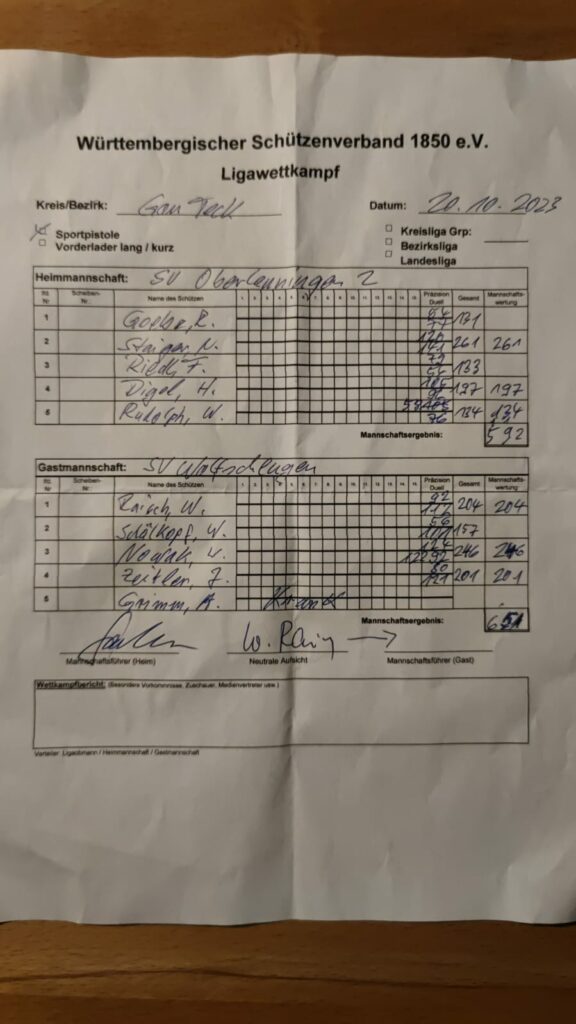 Württembergischer Schützenverband 1850 e.V.
Ligawettkampf
Kreis/Bezirk: Gau Teck Datum: 20.10.2023
Sportpistole Kreisliga Grp:
Vorderlader lang / kurz Bezirksliga
Landesliga
Heimmannschaft: SV Oberlenningen 2
lfd. Nr Scheiben-Nr. Name des Schützen 1 2 3 4 5 6 7 8 9 10 11 12 13 14 15 Präzision Duell Gesamt Mannschafts-wertung
1 R. 131
2 Staiger, N. 120 141 261 261
3 F. 133
4 Digel, H. 197 197
5 Rudolph, W. 58 76 134 134
Mannschaftsergebnis: 592
Gastmannschaft: SV Wolfschlugen
lfd. Nr Scheiben-Nr. Name des Schützen 1 2 3 4 5 6 7 8 9 10 11 12 13 14 15 Präzision Duell Gesamt Mannschafts-wertung
1 Raisch, W. 92 112 204 204
2 Schälkopf, W. 56 101 157
3 Nowak, 124 122 246 246
4 Zeitler, J. 80 121 201 201
5 Grimm, A. Krank
Mannschaftsergebnis: 651
Mannschaftsführer (Heim) Neutrale Aufsicht Mannschaftsführer (Gast)
Wettkampfbericht: (Besondere Vorkommnisse, Zuschauer, Medienvertreter usw.)
Verteiler: Ligaobmann / Heimmannschaft / Gastmannschaft